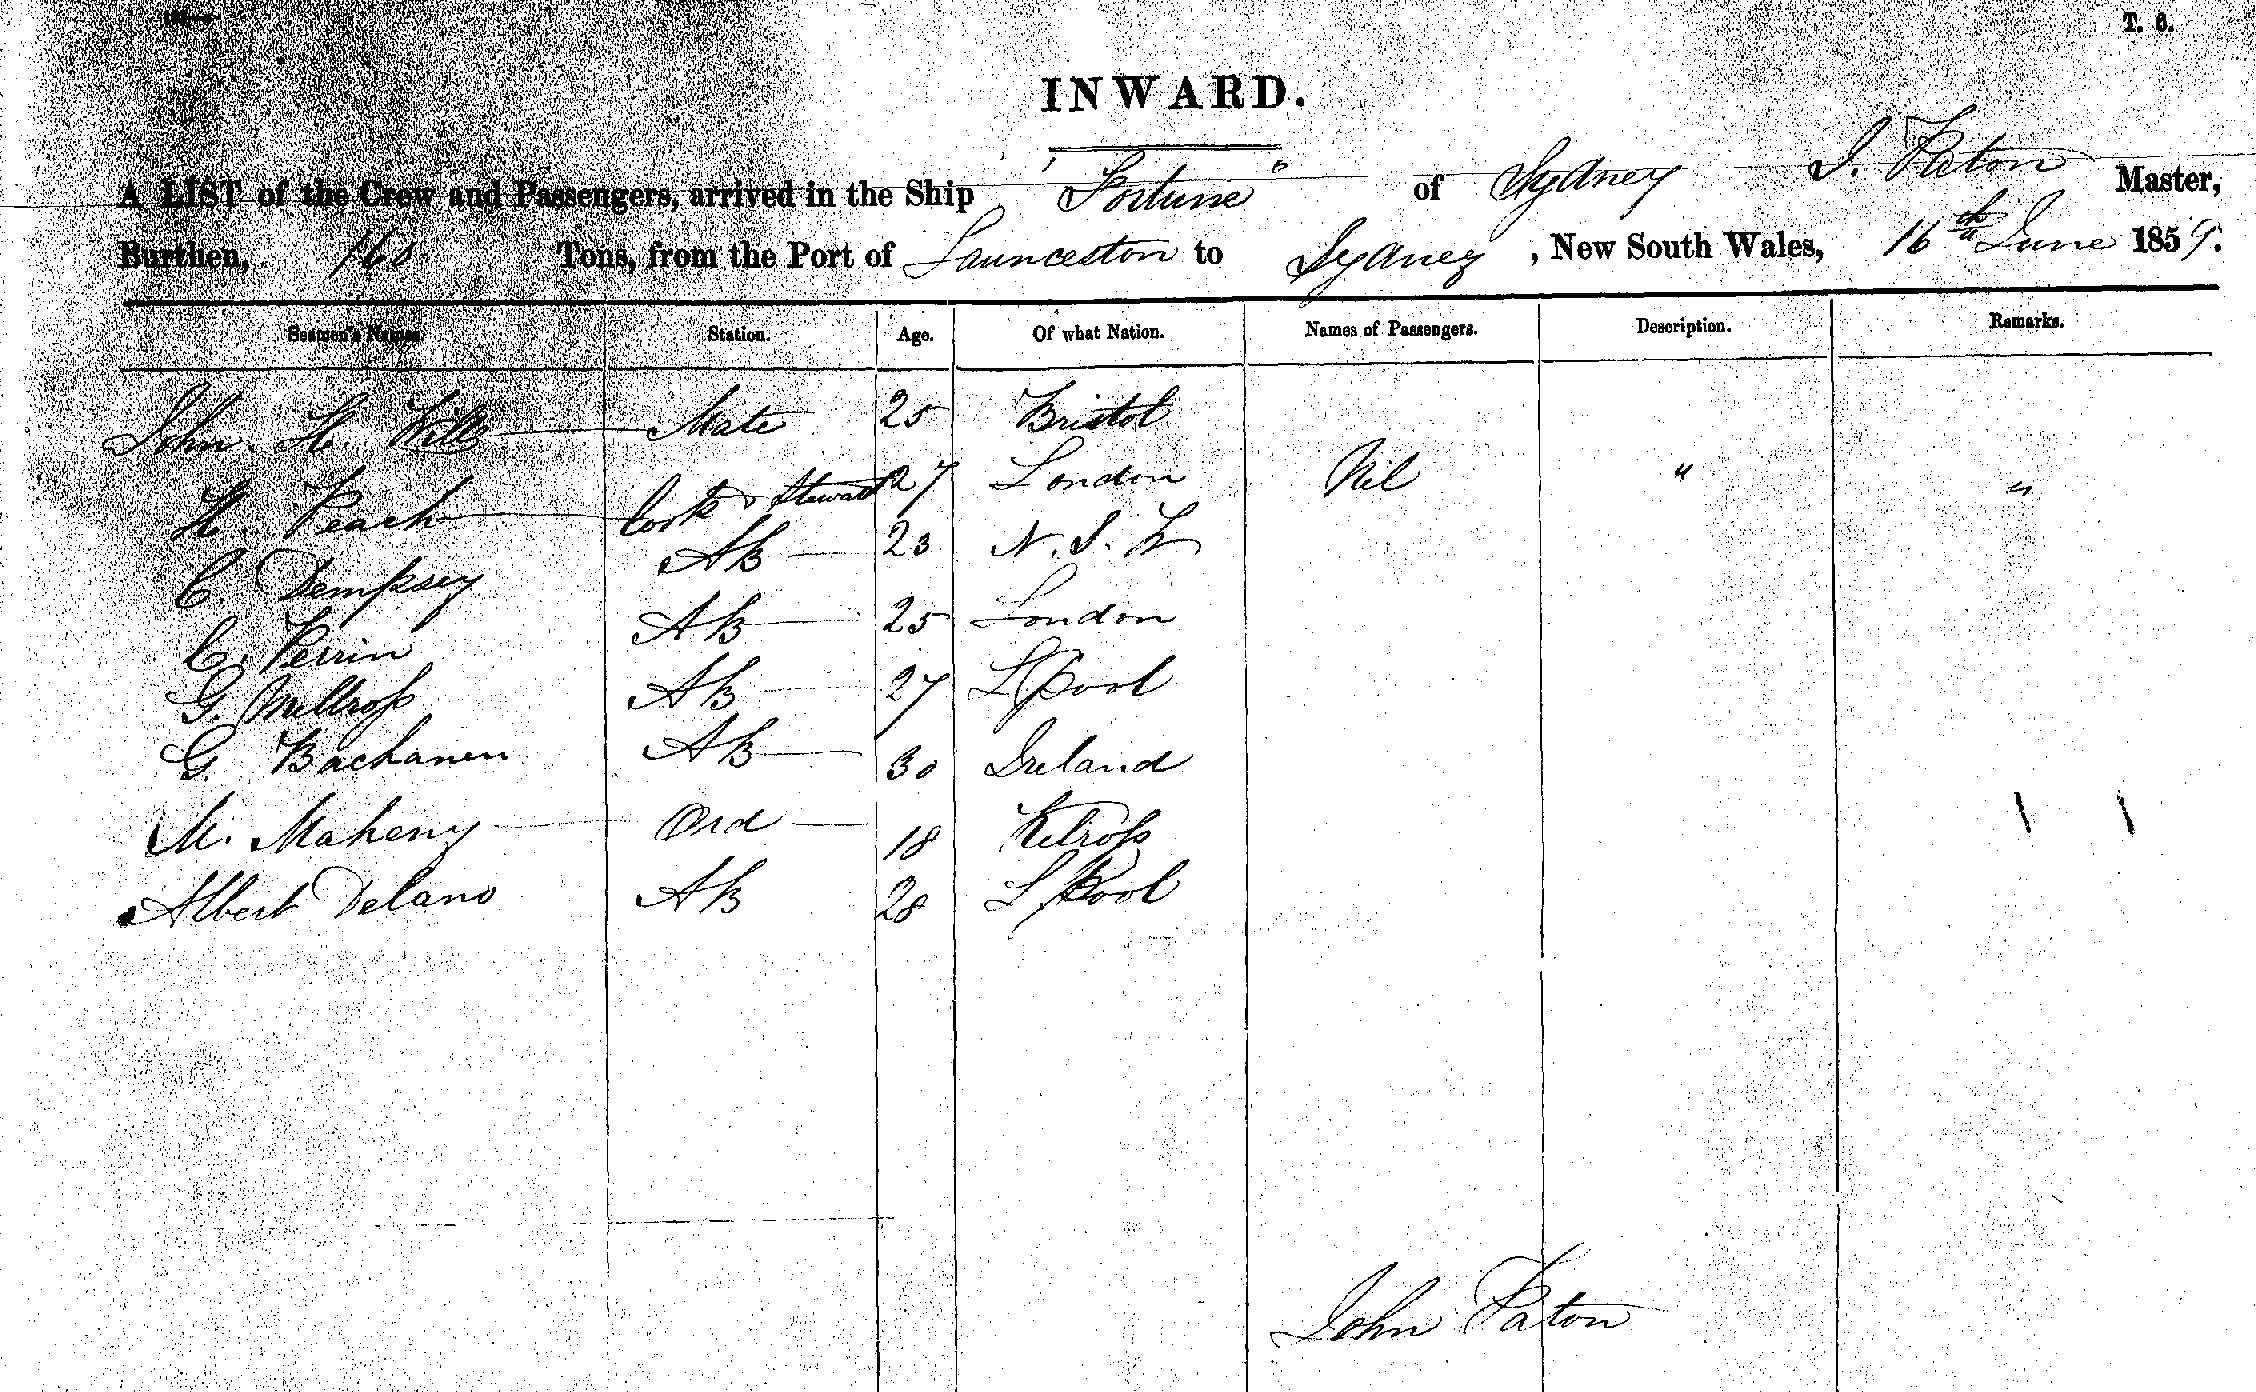 T. 6.
INWARD.
A LIST of the Crew and Passengers, arrived in the Ship "Fortune" of Sydney J. Paton Master,
Burthen, 160 Tons, from the Port of Launceston to Sydney, New South Wales, 16th June 1859.
Seamen's Names. Station. Age. Of what Nation. Names of Passengers. Description. Remarks.
John. H. Wills Mate 25 Bristol
H. Peach Cook & Steward 27 London Nil " "
C. Dempsey AB 23 N. S. W
C. Perrin AB 25 London
G. Milltross AB 27 L'Pool
G Bachanen AB 30 Ireland
M. Maheny Ord 18 Kelross
Albert Delano AB 28 L'Pool
John Paton